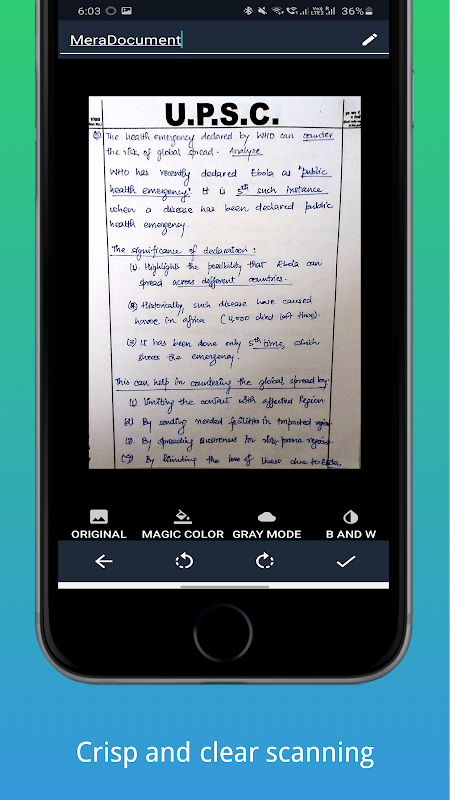 6:03
36%
MeraDocument
U.P.S.C.
The health emergency declared by WHO can counter
the risk of global spread. Analyze
WHO has recently declared Ebola as "public
health emergency". It is 5th such instance
when a disease has been declared public
health emergency.
The significance of declaration:
(1) Highlights the possibility that Ebola can
spread across different countries.
(2) Historically, such disease have caused
havoc in africa (4,000 died
(3) It has been done only 5th time, which
shows the emergency.
This can help in countering the global spread by-
(1) limiting the contact with affected Region
(2) By sending needed facilities in Impacted region
(3) By spreading awareness for risk prone regions
By limiting the loss of these due to Ebola,
ORIGINAL
MAGIC COLOR
GRAY MODE
B AND W
Crisp and clear scanning